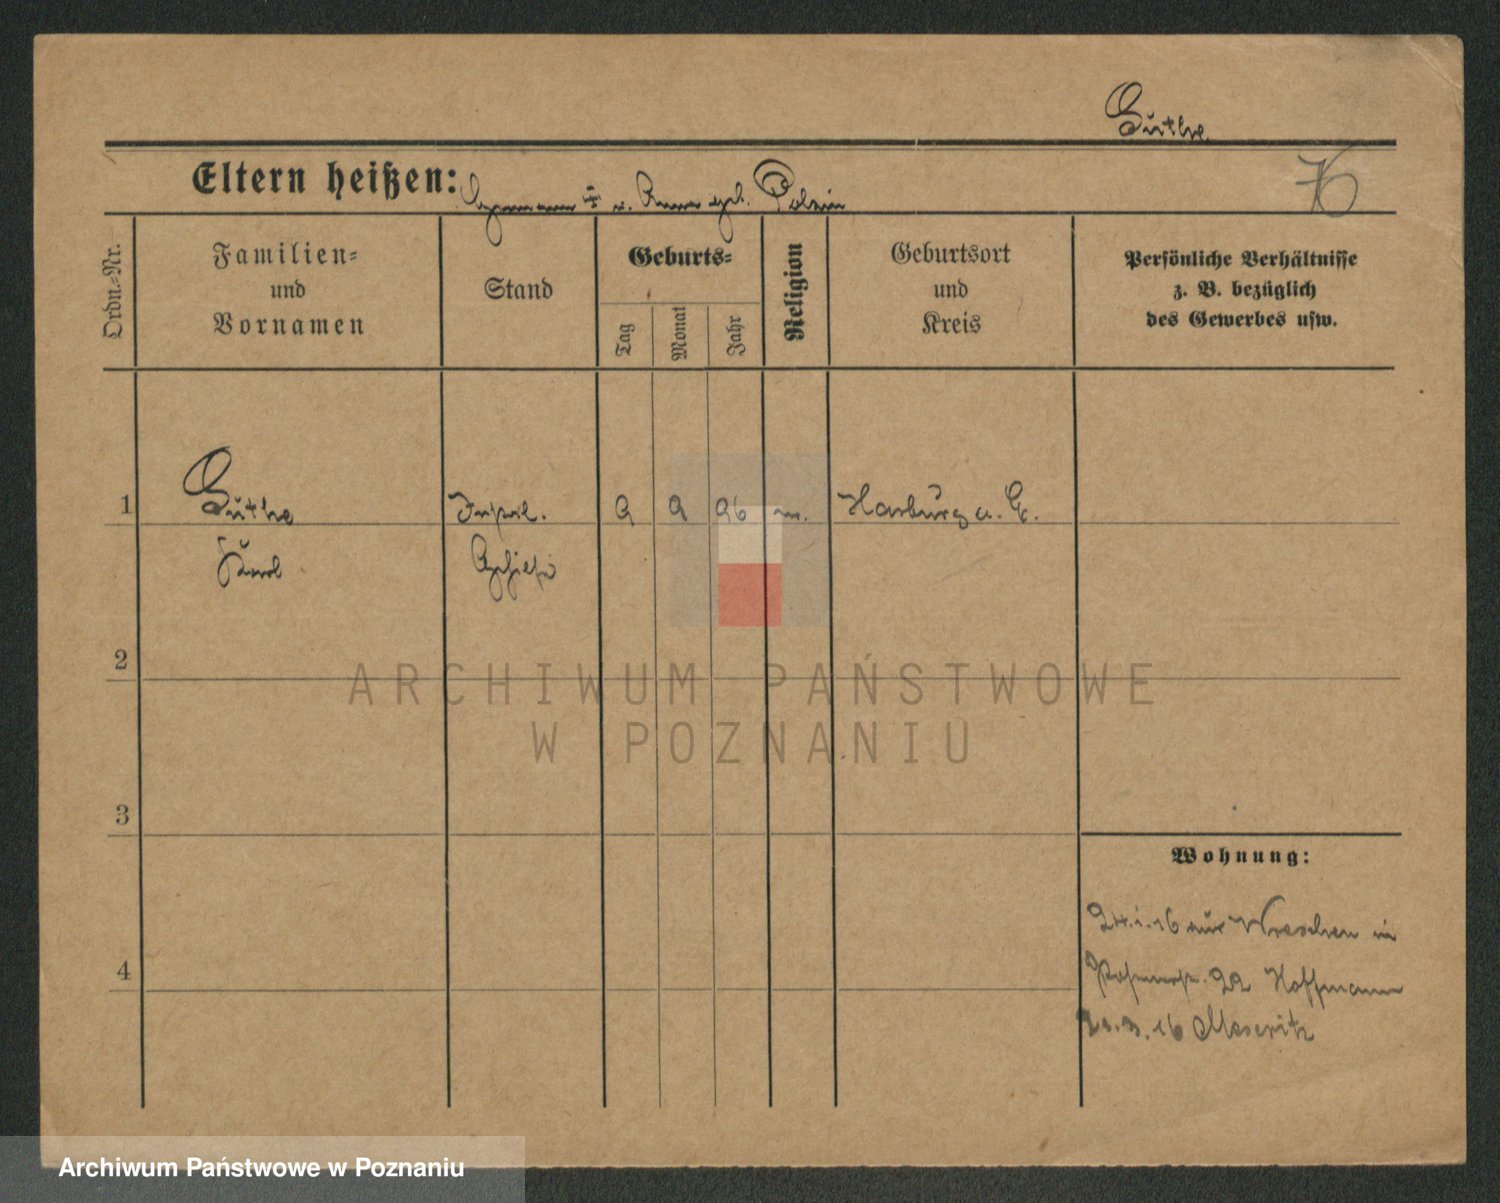 Guthe
Eltern heißen: † u. Anna geb.
76
Ordn.=Nr.
Familien=
und
Vornamen
Stand
Geburts=
Tag
Monat
Jahr
Religion
Geburtsort
und
Kreis
Persönliche Verhältnisse
z. B. bezüglich
des Gewerbes usw.
1
Guthe
9 9 96
Harburg a. E.
Karl
2
ARCHIWUM PAŃSTWOWE
W POZNANIU
3
Wohnung:
24.1.16 aus Wreschen in
4
22 Hoffmann
16 Meseritz
Archiwum Państwowe w Poznaniu